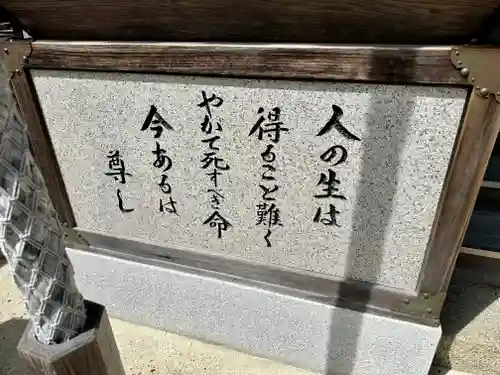 人の生は
得ること難く
やかて死すべき命
今あるは
尊し